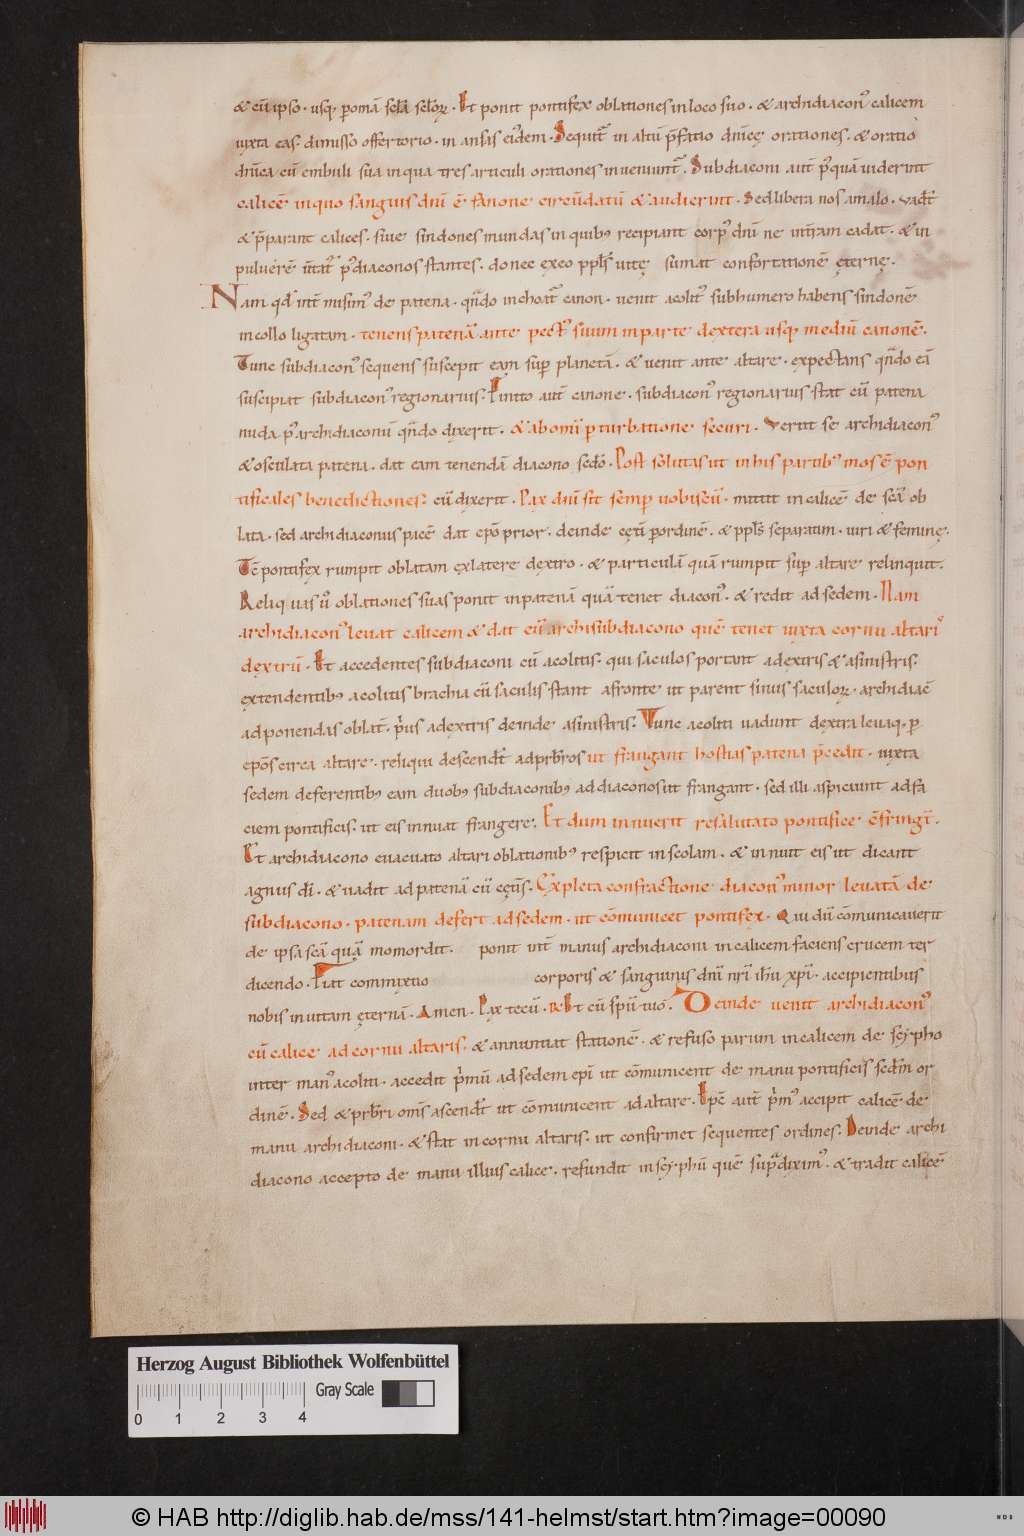 & cū ipso · usq; ꝑ omā scła scłoꝝ. Et ponit pontifex oblationes in loco suo · & archidiaconꝰ calicem
iuxta eas · dimisso offertorio · in ansis eiꝰdem · Sequit̄ in altū p̄fatio dn̄icę orationes · & oratio
dn̄ica cū embuli sua in qua tres articuli orationes inueniunt̄. Subdiaconi aut̄ pꝰquā uiderint
calicē in quo sanguis dn̄i ē fanone circūdatū & audierint · Sed libera nos a malo · uadt̄
& p̄parant calices · siue sindones mundas in quibꝰ recipiant corpꝰ dn̄i ne in t̄ram cadat · & in
puluerē ūtat̄ pꝰ diaconos stantes · donec ex eo ppłs uitę sumat confortationē ęternę.
Nam qđ int̄misimꝰ de patena · qn̄do inchoat̄ canon · uenit acolitꝰ sub humero habens sindonē
in collo ligatam · tenens patenā ante pectꝰ suum in parte dextera usq; mediū canonē.
Tunc subdiaconꝰ sequens suscepit eam suꝑ planetā · & uenit ante altare · expectans qn̄do eā
suscipiat subdiaconꝰ regionarius. Finito aut̄ canone · subdiaconꝰ regionarius stat cū patena
nuda pꝰ archidiaconū qn̄do dixerit · & ab om̄i ꝑturbatione securi · Vertit se archidiaconꝰ
& osculata patena · dat eam tenendā diacono sedō. Post solutas ut in his partibꝰ mos ē pon
tificales benedictiones. cū dixerit · Pax dn̄i sit semꝑ uobiscū · mittit in calicē de scā ob
lata · sed archidiaconus pacē dat ep̄o prior. deinde cęti ꝑ ordinē · & ppłs separatim · uiri & feminę.
Tc̄ pontifex rumpit oblatam ex latere dextro · & particulā quā rumpit suꝑ altare relinquit.
Reliquas ū oblationes suas ponit in patenā quā tenet diaconꝰ · & redit ad sedem. Nam
archidiaconꝰ leuat calicem & dat eū archisubdiacono quē tenet iuxta cornu altariꝰ
dextrū · Et accedentes subdiaconi cū acolitis · qui saculos portant a dextris & a sinistris.
extendentibꝰ acolitis brachia cū saculis stant a fronte ut parent sinus saculoꝝ · archidiac̄
ad ponendas oblat̄ · p̄us a dextris deinde a sinistris. Tunc acoliti uadunt dextra leuaq; ꝑ
epōs circa altare · reliqui descendt̄ ad p̄rbros ut frangant hostias patena p̄cedit · iuxta
sedem deferentibꝰ eam duobꝰ subdiaconibꝰ ad diaconos ut frangant · sed illi aspiciunt ad fa
ciem pontificis · ut eis innuat frangere. Et dum innuerit resalutato pontifice c̄fringt̄.
Et archidiacono euacuato altari oblationibꝰ respicit in scolam · & innuit eis ut dicant
agnus dī · & uadit ad patenā cū cęt̄s. Expleta confractione diaconꝰ minor leuatā de
subdiacono · patenam defert ad sedem · ut cōmunicet pontifex. Qui dū cōmunicauerit
de ipsa scā quā momordit. ponit int̄ manus archidiaconi in calicem faciens crucem ter
dicendo. Fiat commixtio corporis & sanguinis dn̄i nr̄i ih̄u xp̄i · accipientibus
nobis in uitam ęternā. Amen. Pax tecū. R. Et cū sp̄u tuo. Deinde uenit archidiaconꝰ
cū calice ad cornu altaris. & annuntiat stationē · & refuso parum in calicem de scypho
inter manꝰ acoliti · accedit p̄mū ad sedem ep̄i ut cōmunicent de manu pontificis scđm or
dinē. Sed & p̄rbri om̄s ascendt̄ ut cōmunicent ad altare. Ep̄c aut̄ p̄mꝰ accipit calicē de
manu archidiaconi · & stat in cornu altaris · ut confirmet sequentes ordines. Deinde archi
diacono accepto de manu illius calice · refundit in scyphū quē sup̄diximꝰ · & tradit calicē
Herzog August Bibliothek Wolfenbüttel
Gray Scale
0 1 2 3 4
© HAB http://diglib.hab.de/mss/141-helmst/start.htm?image=00090